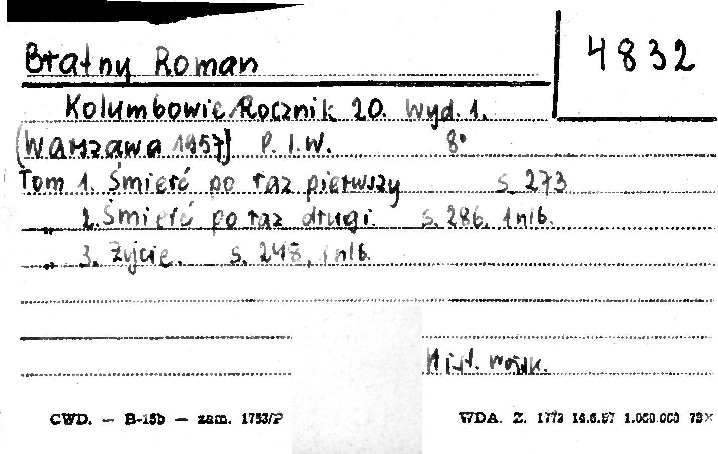 Bratny Roman
4832
Kolumbowie Rocznik 20. Wyd. 1.
(Warszawa 1957] P. I. W. 8°
Tom 1. Śmierć po raz pierwszy s. 273
„ 2. Śmierć po raz drugi. s. 286, 1 nlb.
„ 3. Życie. s. 248, 1 nlb.
Hist. wojsk.
CWD. — B-15b — zam. 1753/P
WDA. Z. 1773 14.6.57 1.000.000 78×